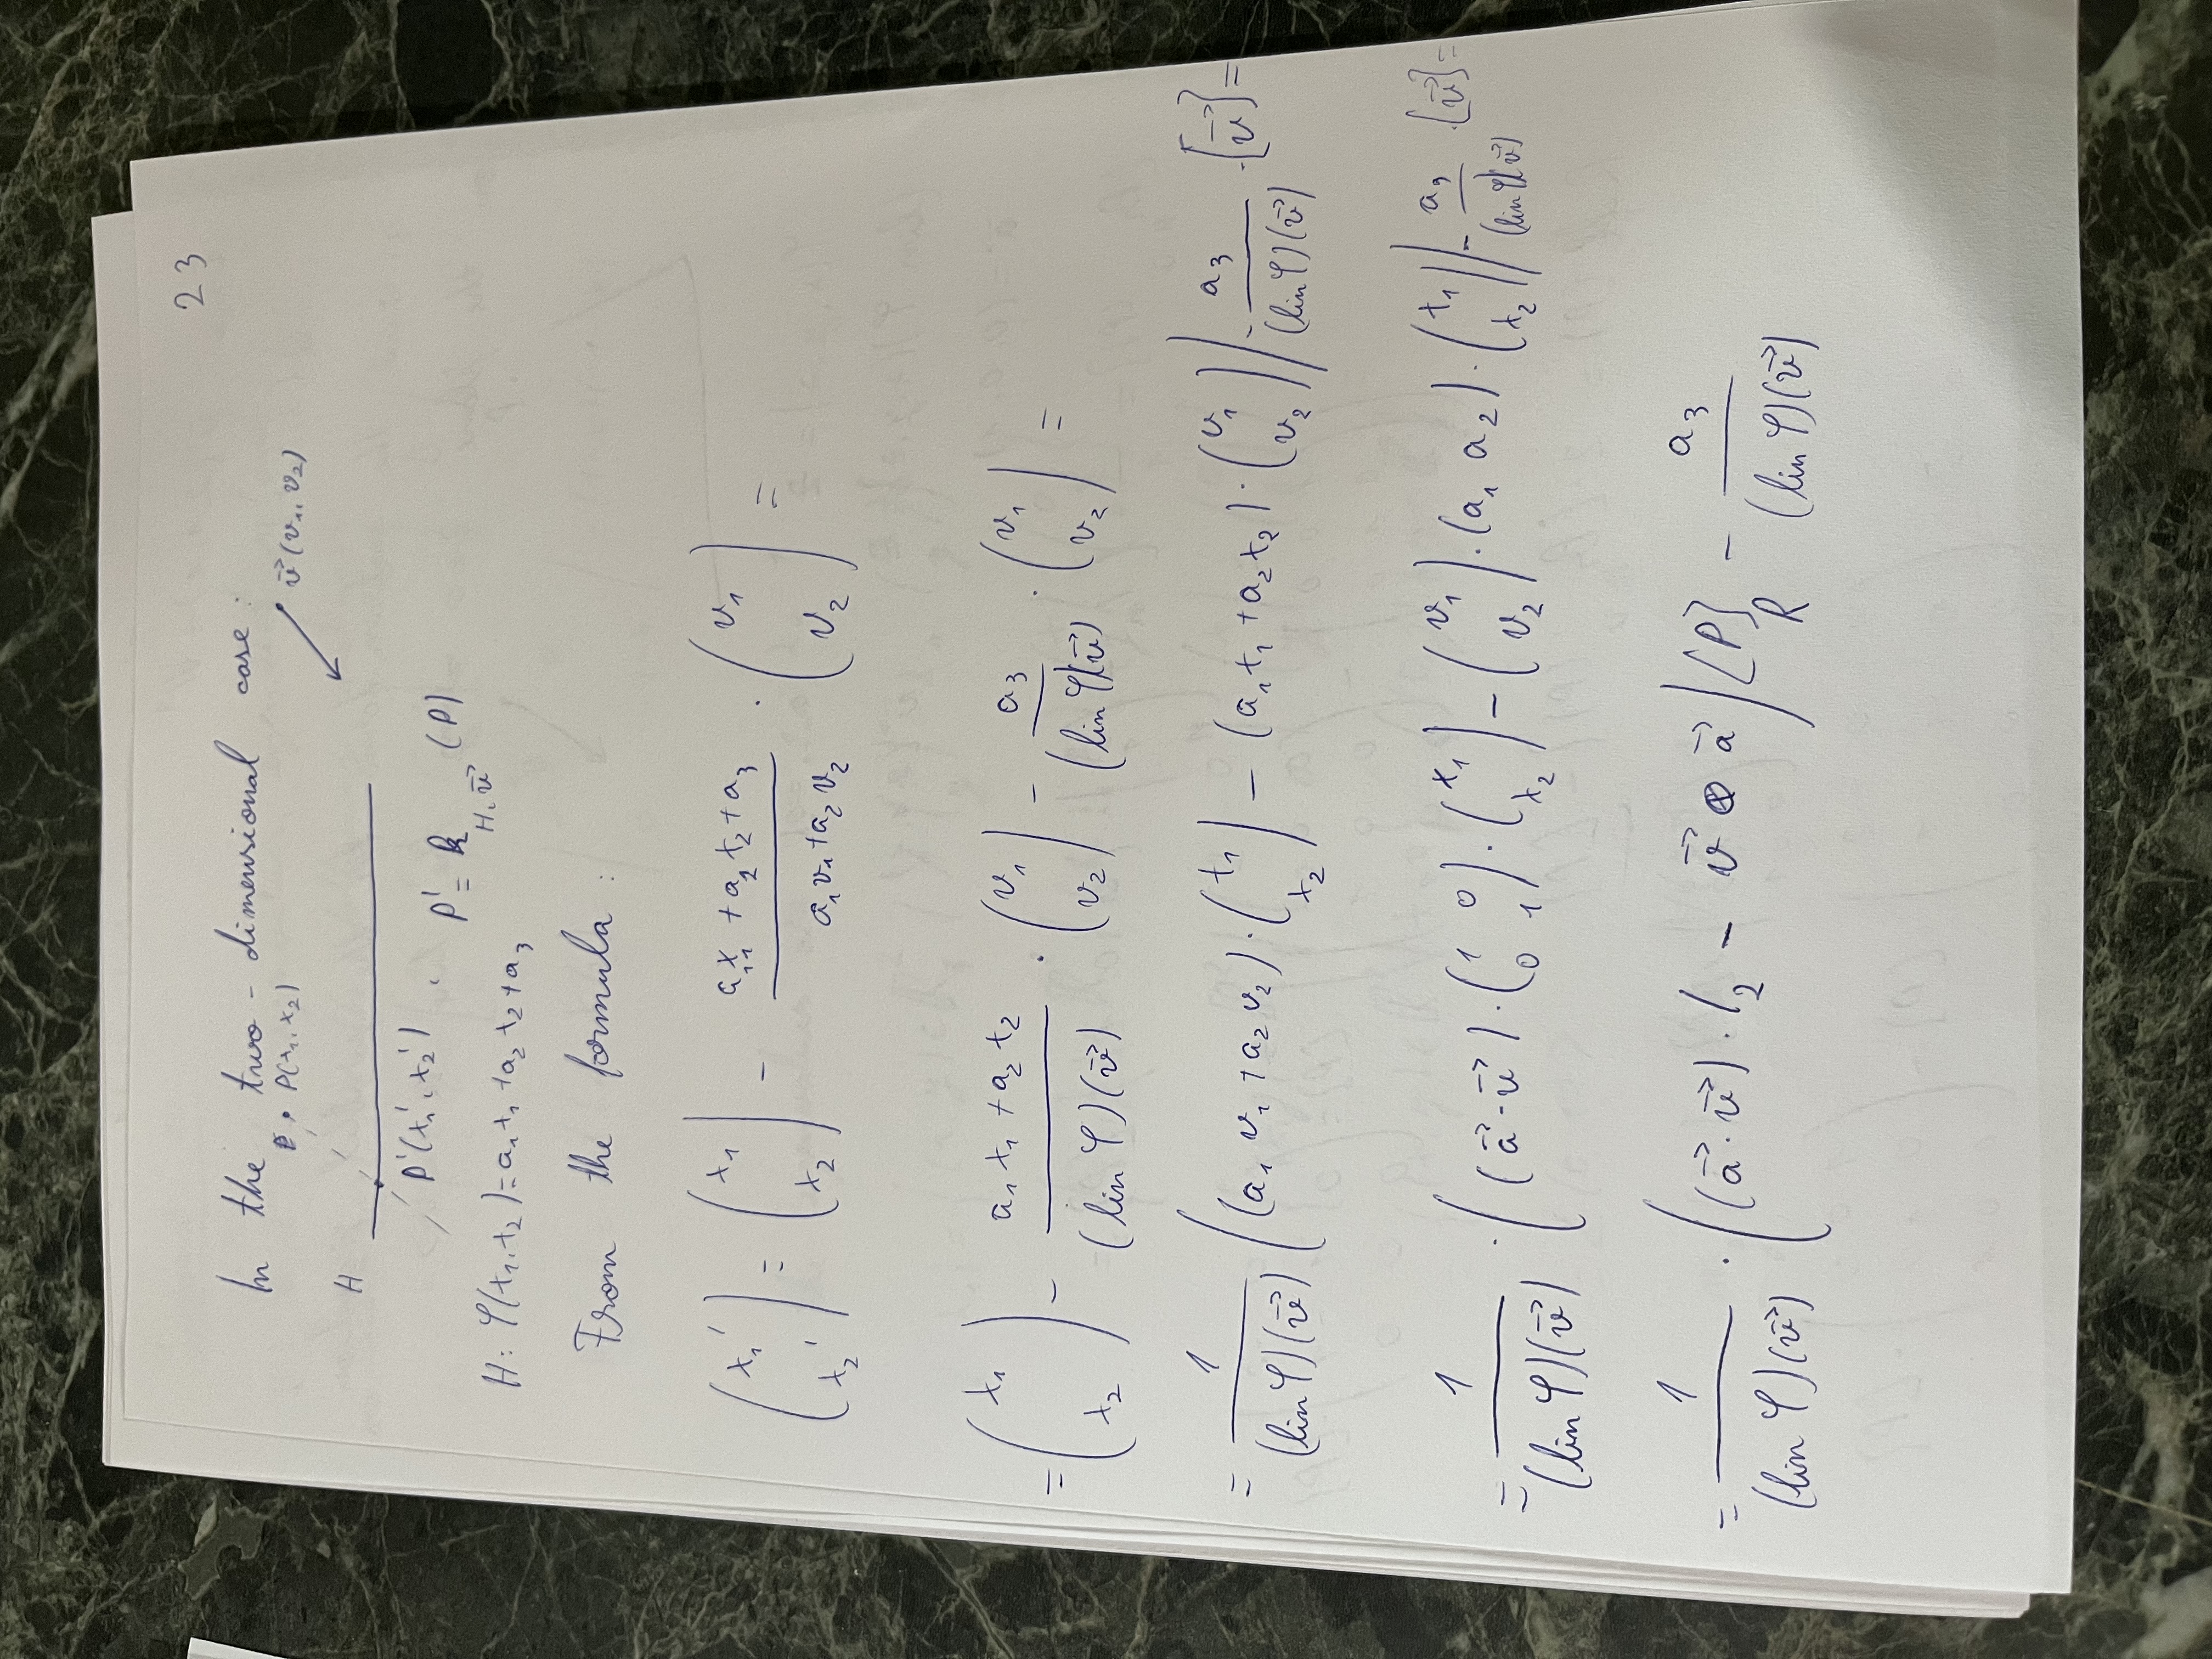 23
In the two-dimensional case:
P(x₁, x₂)
v⃗(v₁, v₂)
H
P'(x₁', x₂').
P' = p_{H, v⃗} (P)
H: φ(x₁, x₂) = a₁x₁ + a₂x₂ + a₃
From the formula:
(x₁' ; x₂') = (x₁ ; x₂) - (a₁x₁ + a₂x₂ + a₃)/(a₁v₁ + a₂v₂) · (v₁ ; v₂) =
= (x₁ ; x₂) - (a₁x₁ + a₂x₂)/((lin φ)(v⃗)) · (v₁ ; v₂) - a₃/((lin φ)(v⃗)) · (v₁ ; v₂) =
= 1/((lin φ)(v⃗)) ((a₁v₁ + a₂v₂) · (x₁ ; x₂) - (a₁x₁ + a₂x₂) · (v₁ ; v₂)) - a₃/((lin φ)(v⃗)) · [v⃗] =
= 1/((lin φ)(v⃗)) · ((a⃗·v⃗) · (1 0 ; 0 1) · (x₁ ; x₂) - (v₁ ; v₂) · (a₁ a₂) · (x₁ ; x₂)) - a₃/((lin φ)(v⃗)) · [v⃗] =
= 1/((lin φ)(v⃗)) · ((a⃗·v⃗) · I₂ - v⃗ ⊗ a⃗) [P]_R - a₃/((lin φ)(v⃗))